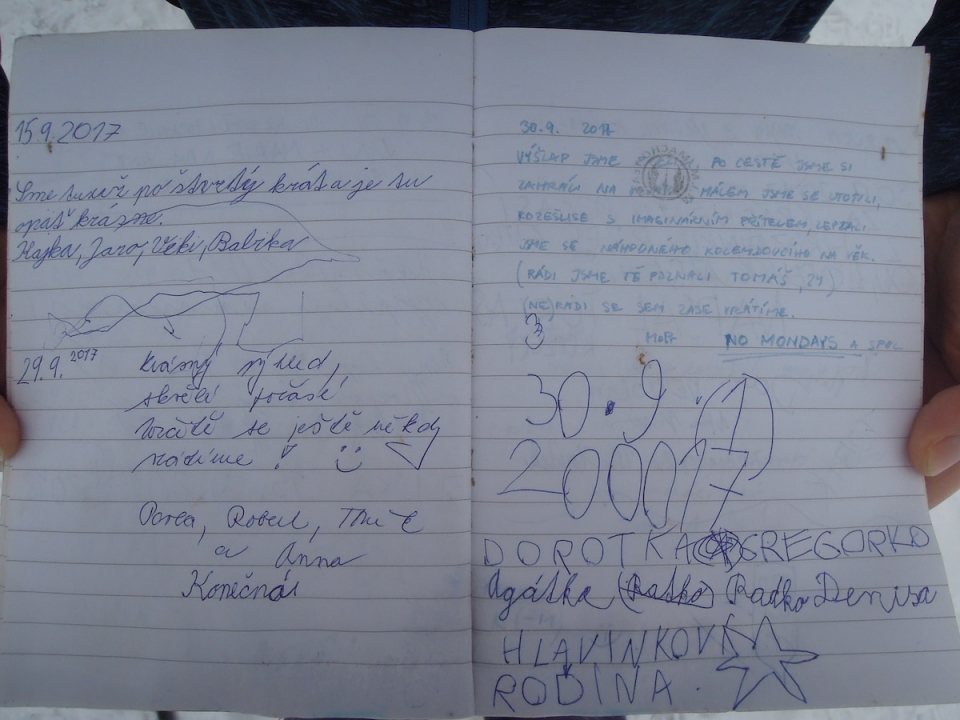 15.9.2017
Sme tu už po štvrtý krát a je tu
opäť krásne.
Katka, Jaro, Veki, Babika
29.9.2017
krásný výhled,
skvělé počasí
Určitě se ještě někdy
vrátíme! :)
Robert,
a Anna
Konečná
30.9. 2017
VÝŠLAP JSME PO CESTĚ JSME SI
ZAHRÁLI NA MÁLEM JSME SE UTOPILI,
S IMAGINÁRNÍM PŘÍTELEM,
JSME SE NÁHODNÉHO KOLEMJDOUCÍHO NA VĚK.
(RÁDI JSME TĚ POZNALI TOMÁŠ, 24)
(NE)RÁDI SE SEM ZASE VRÁTÍME.
NO MONDAYS A SPOL
30.9.
200017
DOROTKA GREGORKO
Agátka Radka Denisa
HLAVINKOVÁ
RODINA.